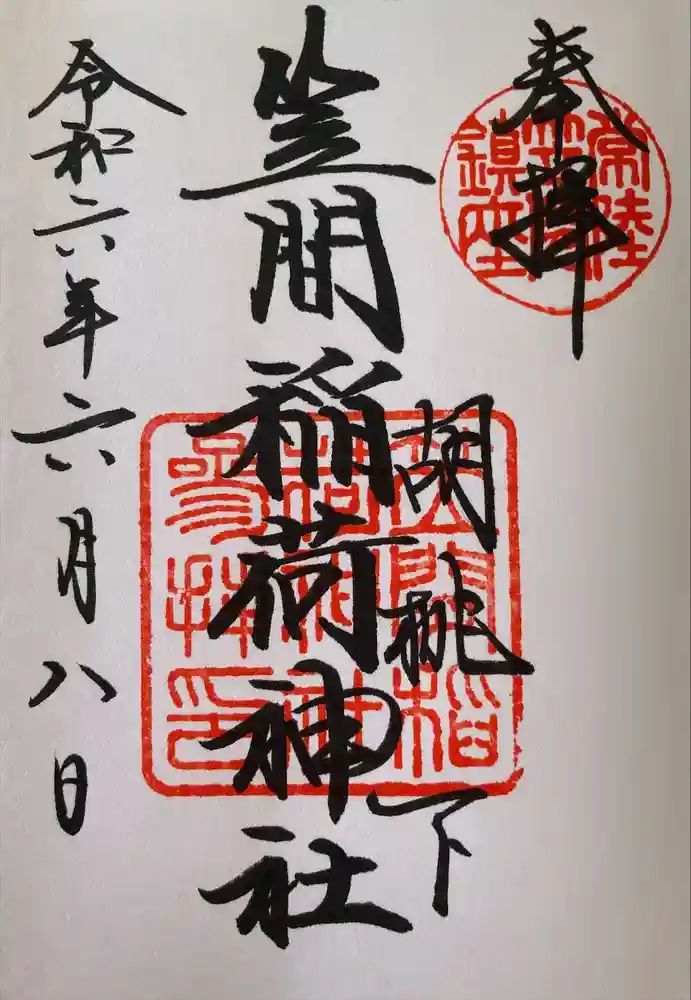 奉拝
常陸
笠間
鎮座
胡桃下
笠間稲
荷神社
参拝印
笠間稲荷神社
令和六年六月八日